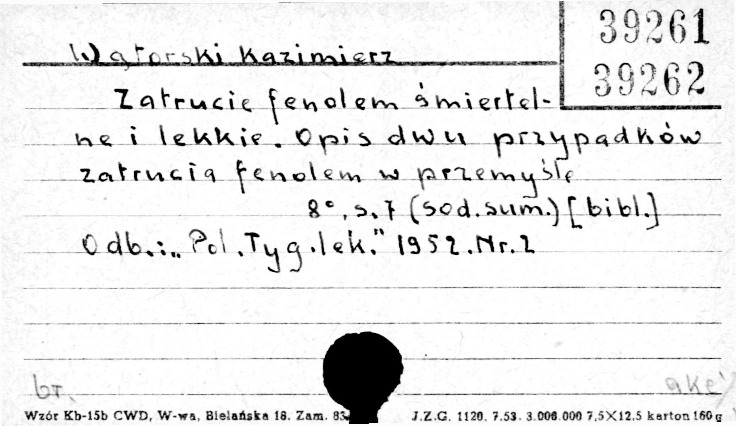 39261
39262
Wątorski Kazimierz
Zatrucie fenolem śmiertel-
ne i lekkie. Opis dwu przypadków
zatrucia fenolem w przemyśle
8°, s. 7 (sod. sum.) [bibl.]
Odb.: „Pol. Tyg. lek." 1952. Nr. 2
br. akc
Wzór Kb-15b CWD, W-wa, Bielańska 18. Zam. 83 J.Z.G. 1120. 7.53. 3.000.000 7,5×12,5 karton 160 g